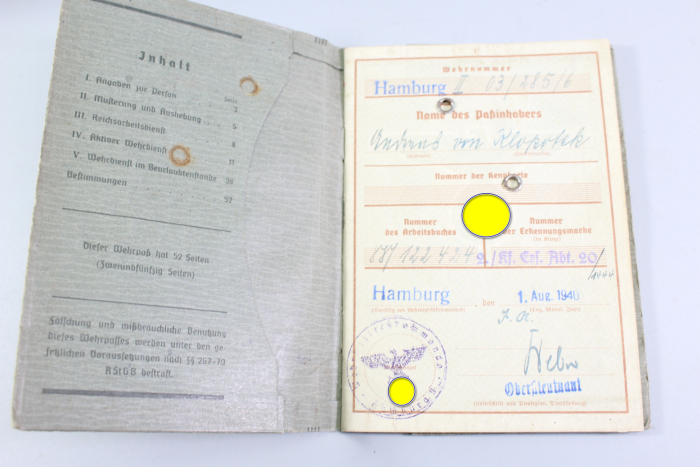 Inhalt
Seite
I. Angaben zur Person . . 3
II. Musterung und Aushebung . . 5
III. Reichsarbeitsdienst 8
IV. Aktiver Wehrdienst 11
V. Wehrdienst im Beurlaubtenstande
Bestimmungen 52
Dieser Wehrpaß hat 52 Seiten
(Zweiundfünfzig Seiten)
Fälschung und mißbräuchliche Benutzung
dieses Wehrpasses werden unter den ge-
setzlichen Voraussetzungen nach §§ 267-70
RStGB bestraft.
Wehrnummer
Hamburg II 03/285/6
Name des Paßinhabers
Andreas von Klopotek
Nummer der Kennkarte
Nummer
des Arbeitsbuches
Nummer
der Erkennungsmarke
122424
2./Kf. Ers. Abt. 20/
Hamburg, den 1. Aug. 1940
I. A.
Oberstleutnant